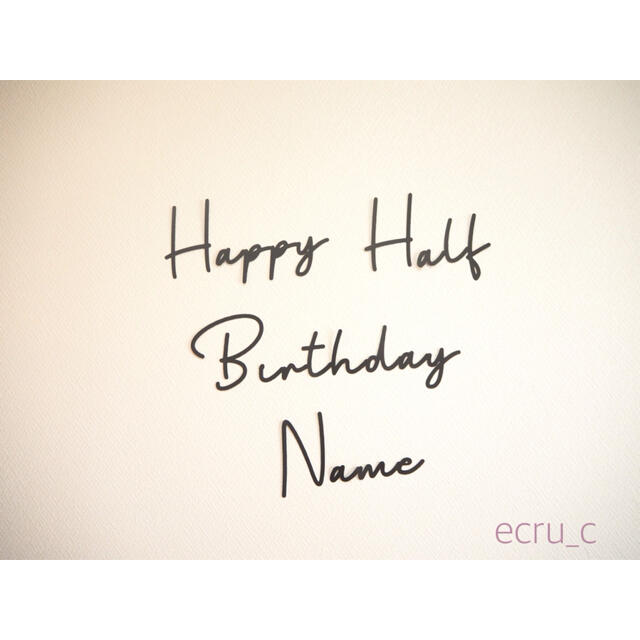 Happy Half
Birthday
Name
ecru_c